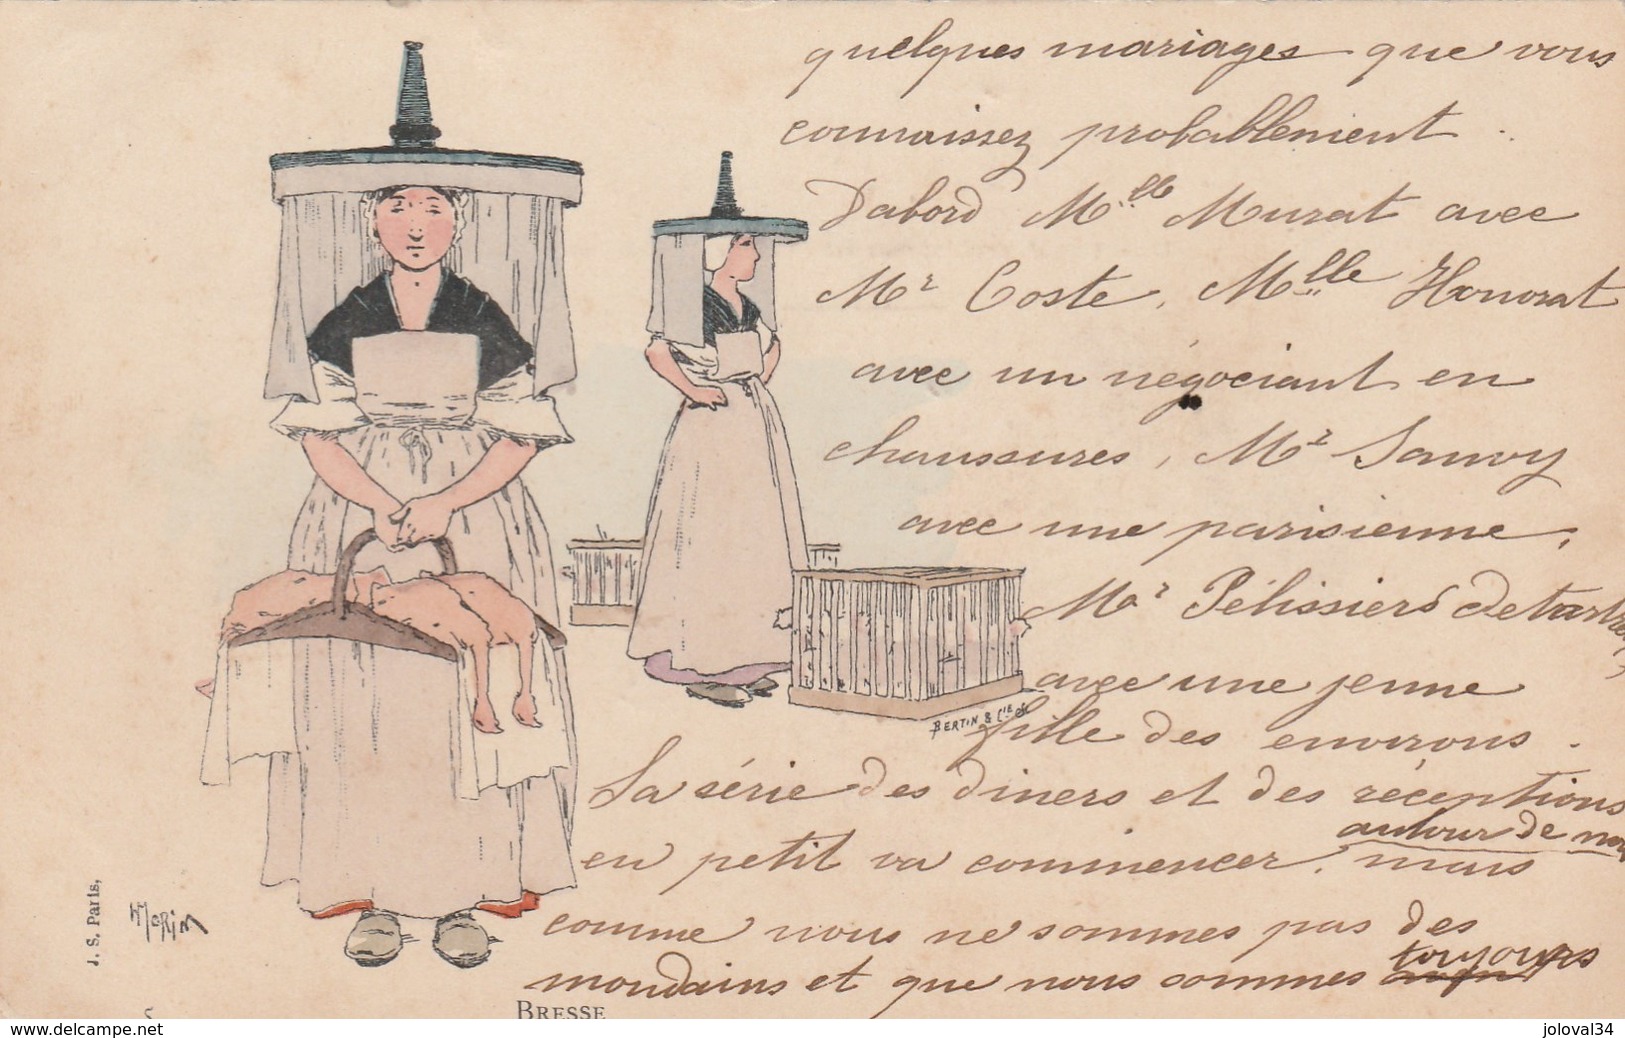 quelques mariages que vous
connaissez probablement.
D'abord M.lle Murat avec
Mr Coste, M.lle Honorat
avec un négociant en
chaussures, Mr Sauvy
avec une parisienne,
Mr Pélissier
avec une jeune
fille des environs.
La série des diners et des réceptions
autour de nous
en petit va commencer, mais
comme nous ne sommes pas des
toujours
mondains et que nous sommes
BERTIN & CIE
J. S. Paris,
H MORIN
5
BRESSE
www.delcampe.net
joloval34